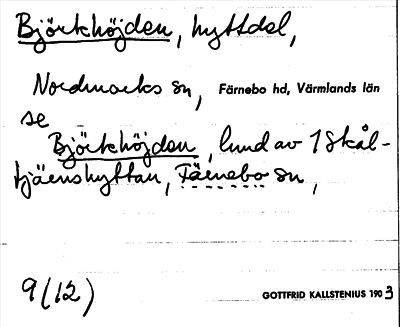 Björkhöjden, hyttdel,
Nordmarks sn, Färnebo hd, Värmlands län
se
Björkhöjden, lund av 1 Skål-
tjärnshyttan, Färnebo sn,
9(12)
GOTTFRID KALLSTENIUS 1903